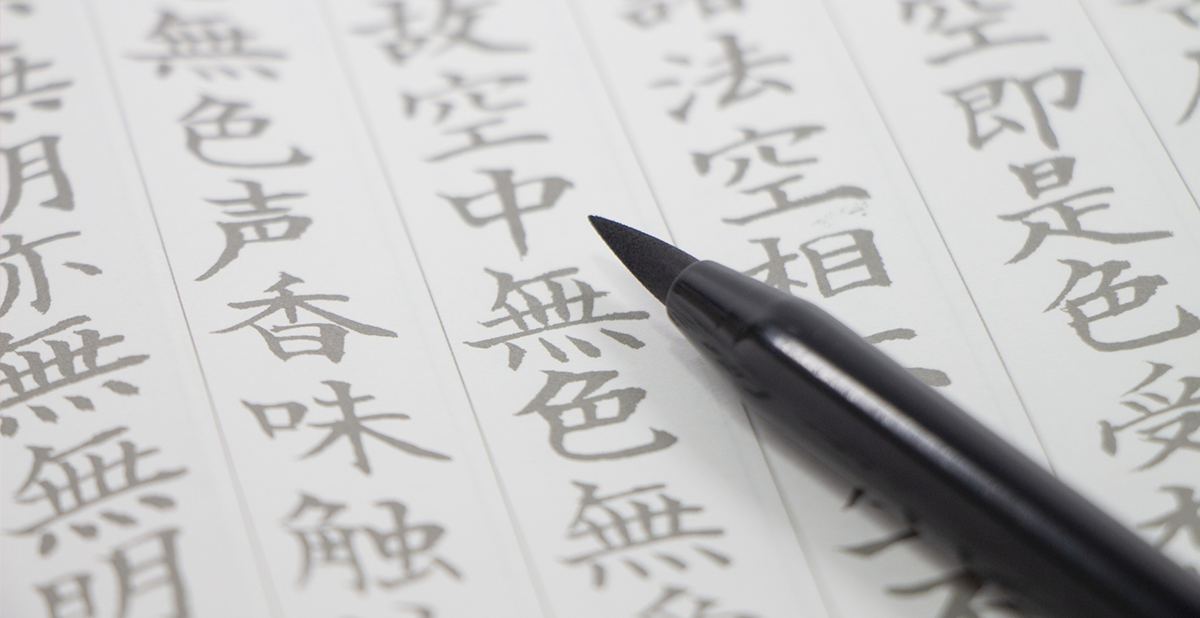 空即是色受
諸法空相
故空中無色無
無色声香味触
無明亦無無明